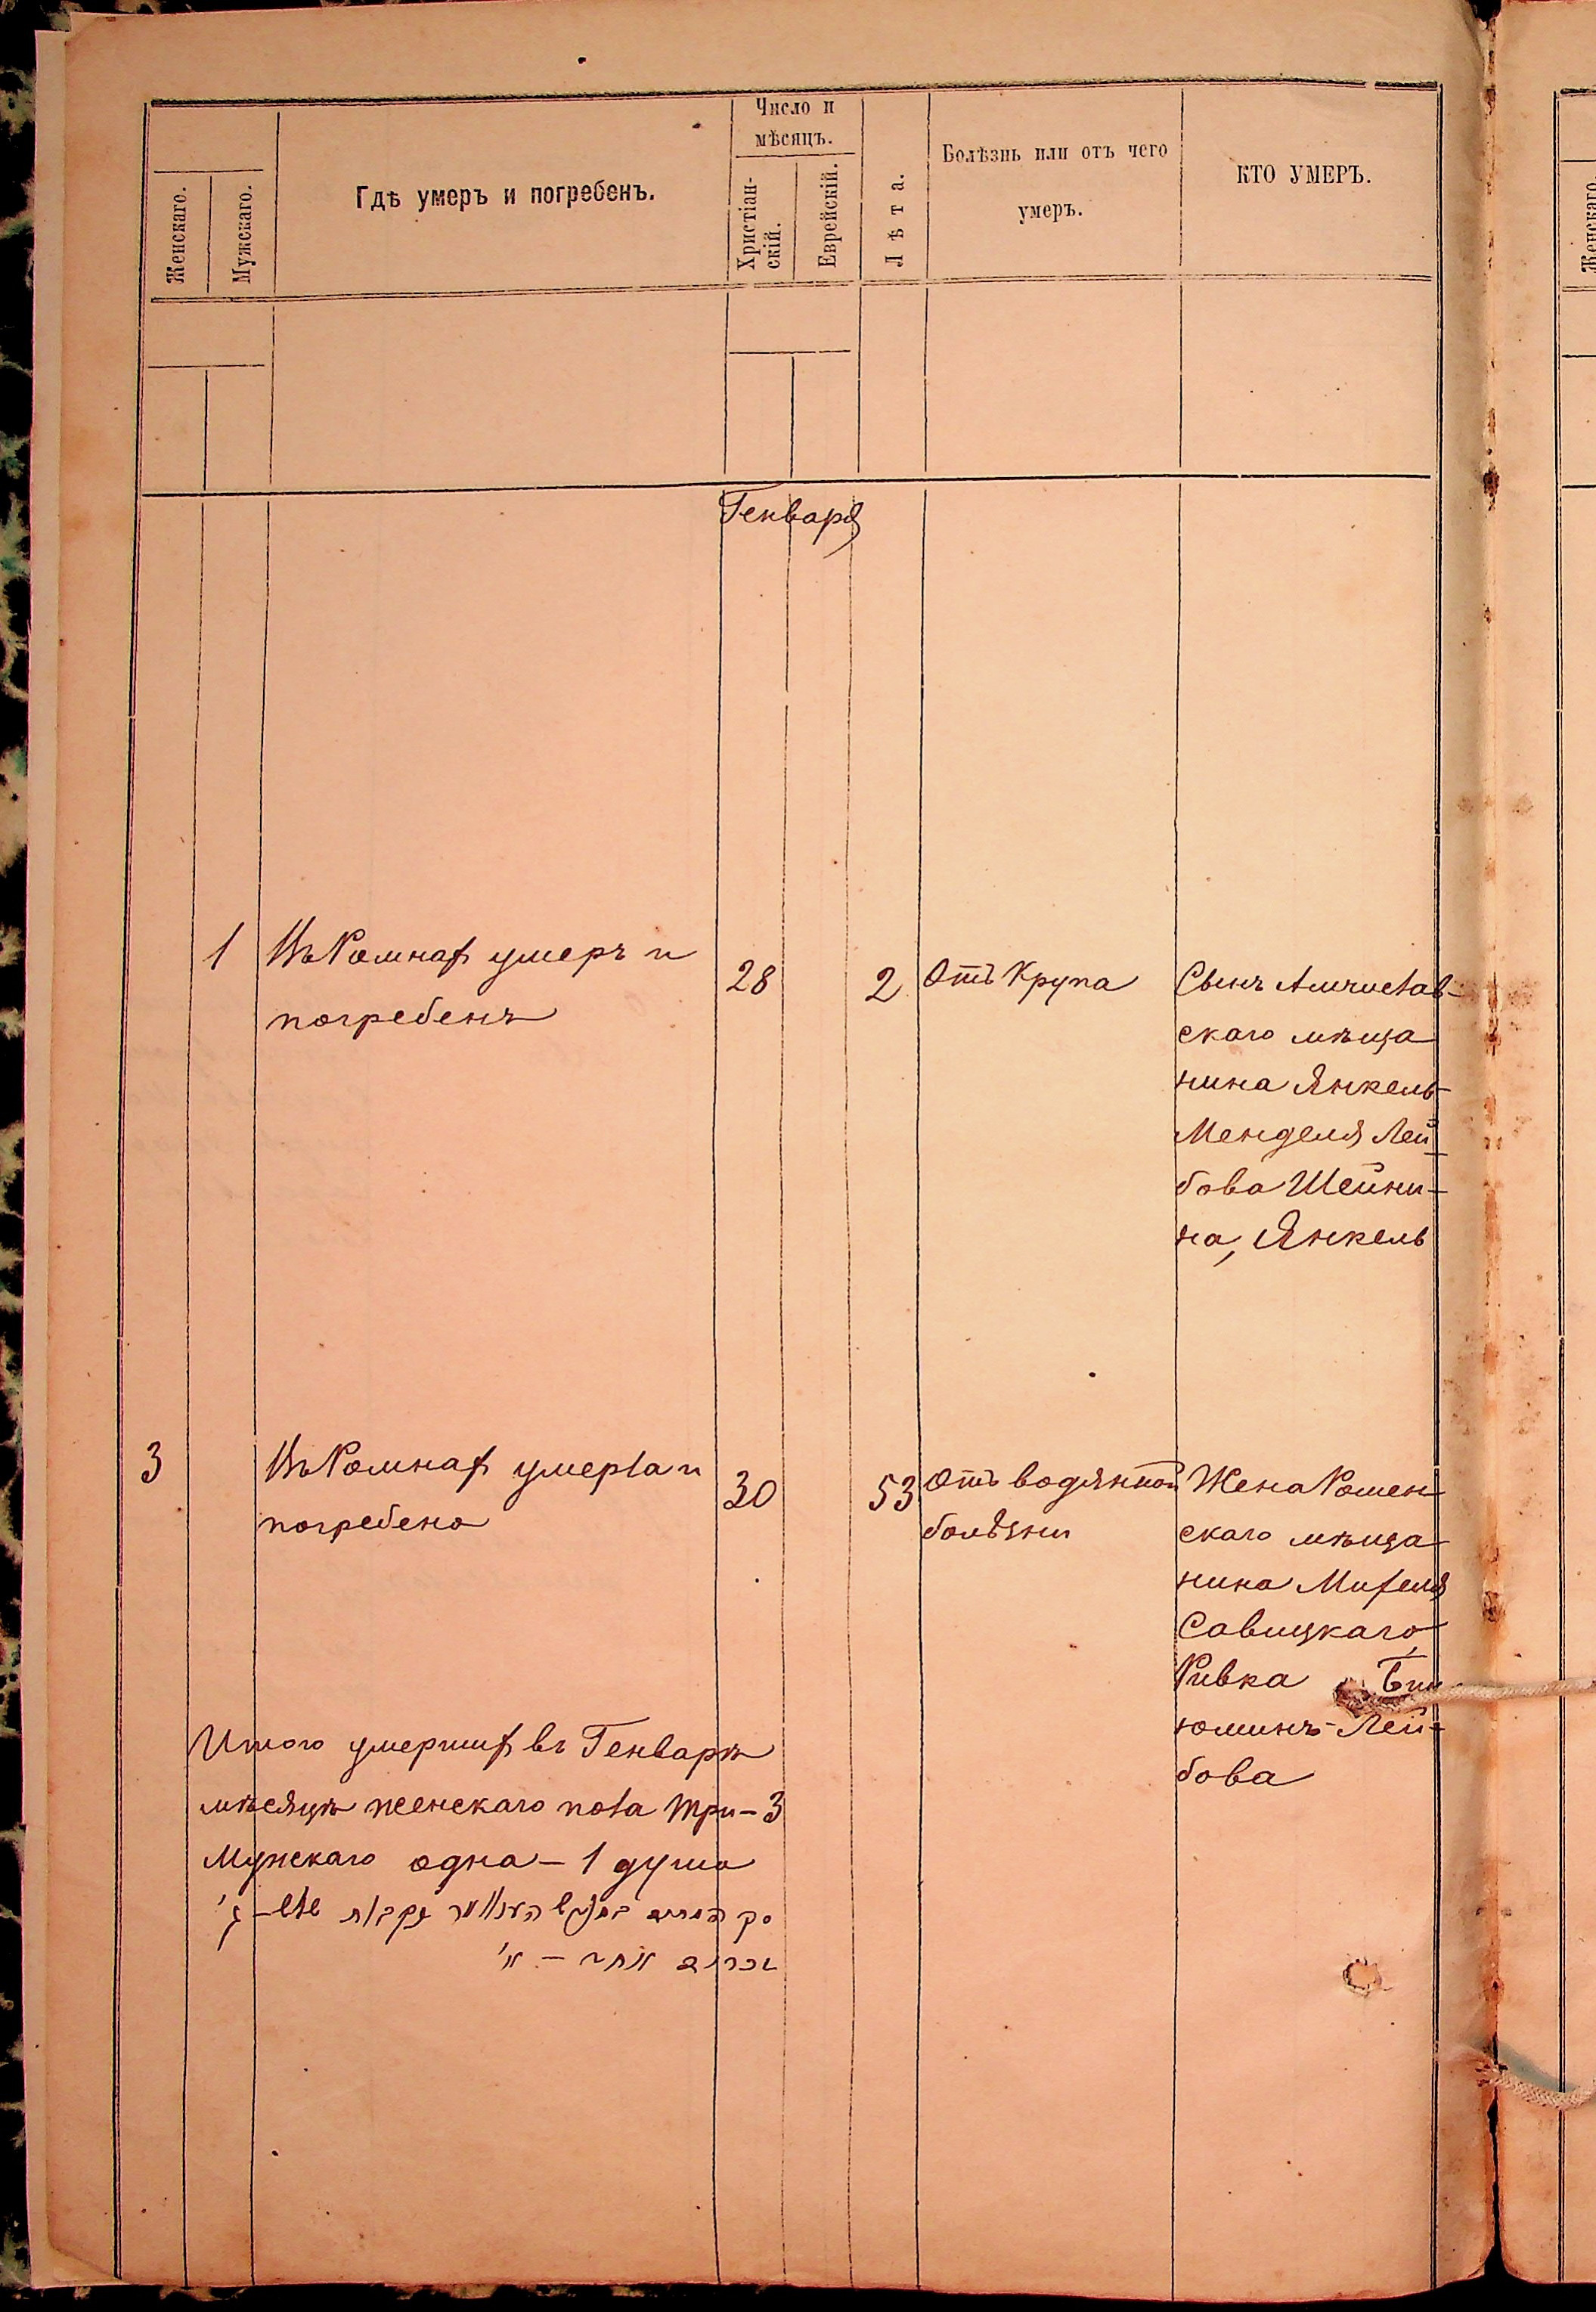 Число и
мѣсяцъ.
Женскаго.
Мужскаго.
Гдѣ умеръ и погребенъ.
Христіан-
скій.
Еврейскій.
Лѣта.
Болѣзнь или отъ чего
умеръ.
КТО УМЕРЪ.
Женскаго.
Генваря
1
Въ Ромнах умеръ и
погребенъ
28
2
Отъ Крупа
Сынъ Амчислав-
скаго мѣща
нина Янкель-
Менделя Лей
бова Шейни-
на, Янкель
3
Въ Ромнах умерла и
погребена
30
53
Отъ водянной
болѣзни
Жена Ромен
скаго мѣща
нина Михеля
Савицкаго,
Ривка Бин
юминъ-Лей-
бова
Итого умерших въ Генварѣ
мѣсяцѣ женскаго пола три-3
Мужскаго одна-1 душа